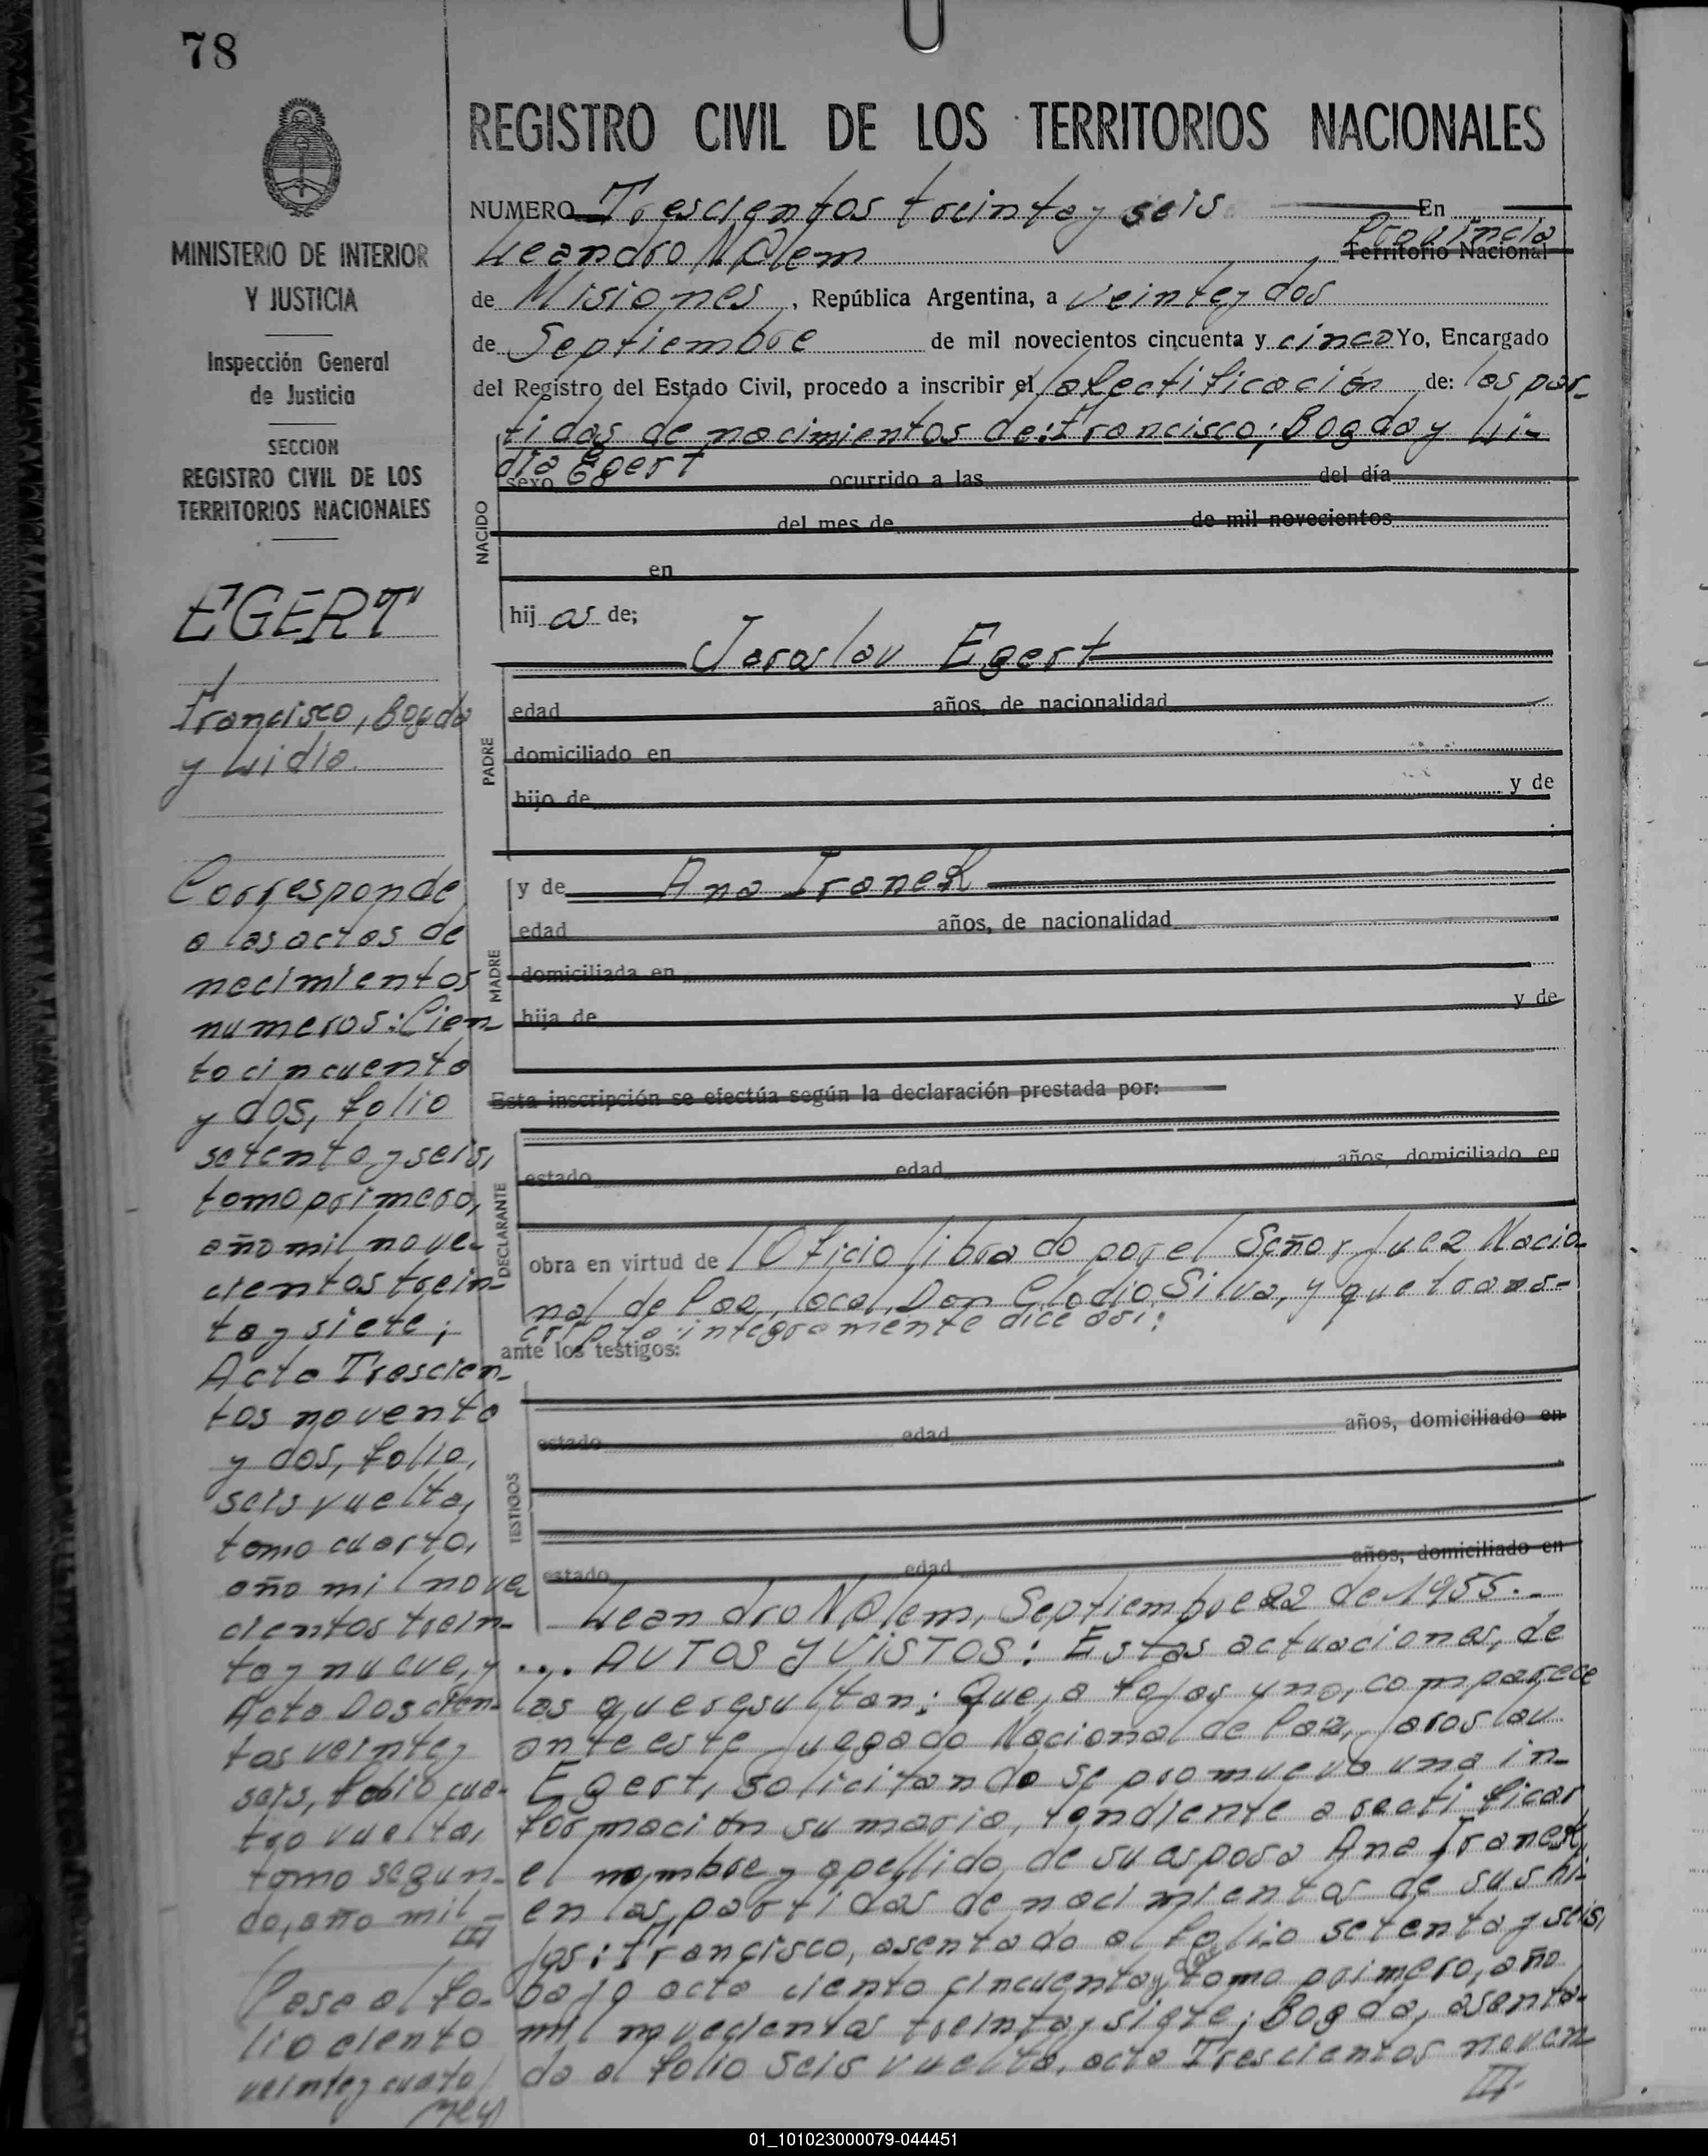 78
MINISTERIO DE INTERIOR
Y JUSTICIA
Inspección General
de Justicia
SECCION
REGISTRO CIVIL DE LOS
TERRITORIOS NACIONALES
EGERT
Francisco, Bogda
y Lidia.
Corresponde
a las actas de
nacimientos
numeros: Cien-
to cincuenta
y dos, folio
setenta y seis,
tomo primero,
año mil nove-
cientos trein-
ta y siete;
Acta Trescien-
tos noventa
y dos, folio,
seis vuelta,
tomo cuarto,
año mil nove
cientos trein-
ta y nueve, y
Acta Doscien-
tos veinte y
seis, folio cua-
tro vuelta,
tomo segun-
do, año mil-
III
Pase al fo-
lio ciento
veinte y cuatro
REGISTRO CIVIL DE LOS TERRITORIOS NACIONALES
NUMERO Trescientos treinta y seis En
Leandro N Alem Provincia Territorio Nacional
de Misiones, República Argentina, a veinte y dos
de Septiembre de mil novecientos cincuenta y cinco Yo, Encargado
del Registro del Estado Civil, procedo a inscribir el/la Rectificación de: las par-
tidas de nacimientos de: Francisco; Bogda y Li-
dia Egert
sexo ocurrido a las del día
del mes de de mil novecientos
NACIDO
en
hij as de;
Jaroslav Egert
edad años, de nacionalidad
PADRE
domiciliado en
hijo de y de
y de Ana Iranek
edad años, de nacionalidad
MADRE
domiciliada en
hija de y de
Esta inscripción se efectúa según la declaración prestada por:
estado edad años, domiciliado en
DECLARANTE
obra en virtud de l Oficio librado por el Señor Juez Nacio-
nal de Paz, local, Don Clodio Silva, y que trans-
cripto integramente dice asi:
ante los testigos:
estado edad años, domiciliado en
TESTIGOS
estado edad años, domiciliado en
Leandro N Alem, Septiembre 22 de 1955.-
... AUTOS Y VISTOS: Estas actuaciones, de
las que resultan: Que, a fojas uno, comparece
ante este Juzgado Nacional de Paz, Jaroslav
Egert, solicitando se promueva una in-
formación sumaria, tendiente a rectificar
el nombre y apellido de su esposa Ana Iranek,
en las partidas de nacimientos de sus hi-
jos: Francisco, asentado al folio setenta y seis,
bajo acta ciento cincuenta y dos tomo primero, año
mil novecientos treinta y siete; Bogda, asenta-
da al folio seis vuelta, acta Trescientos noven
III-
01_101023000079-044451